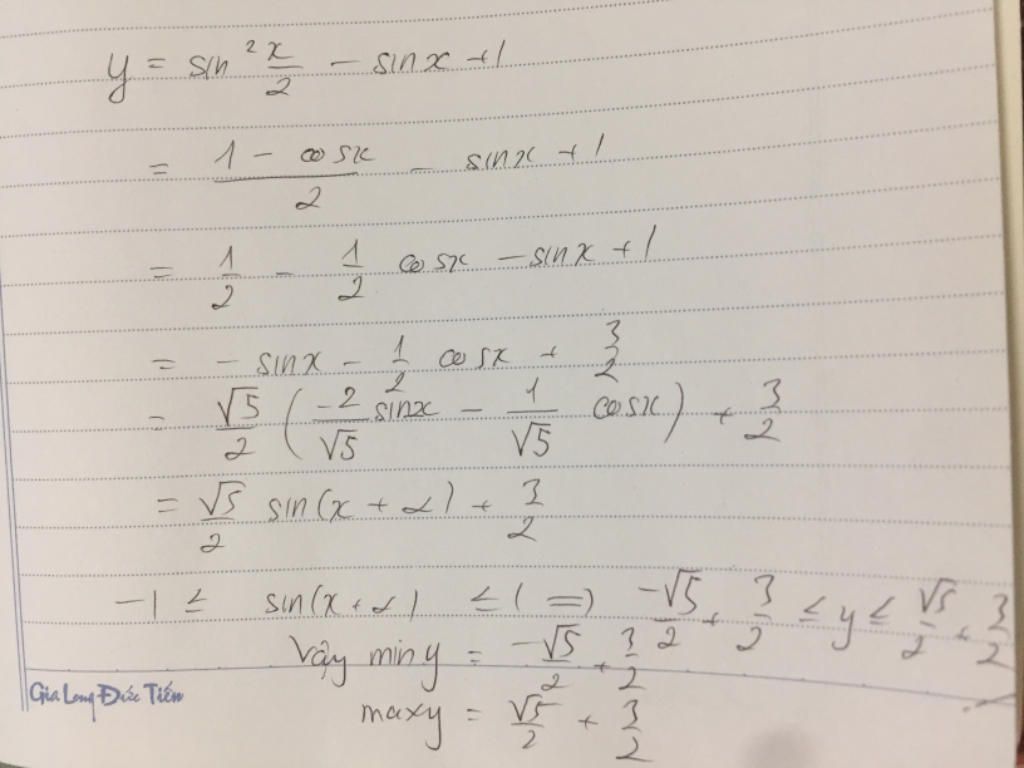 y = sin² x/2 - sinx + 1
= (1 - cosx)/2 - sinx + 1
= 1/2 - 1/2 cosx - sinx + 1
= - sinx - 1/2 cosx + 3/2
= √5/2 (-2/√5 sinx - 1/√5 cosx) + 3/2
= √5/2 sin(x + α) + 3/2
-1 ≤ sin(x + α) ≤ 1 => -√5/2 + 3/2 ≤ y ≤ √5/2 + 3/2
Vậy min y = -√5/2 + 3/2
Gia Long Đức Tiến
maxy = √5/2 + 3/2